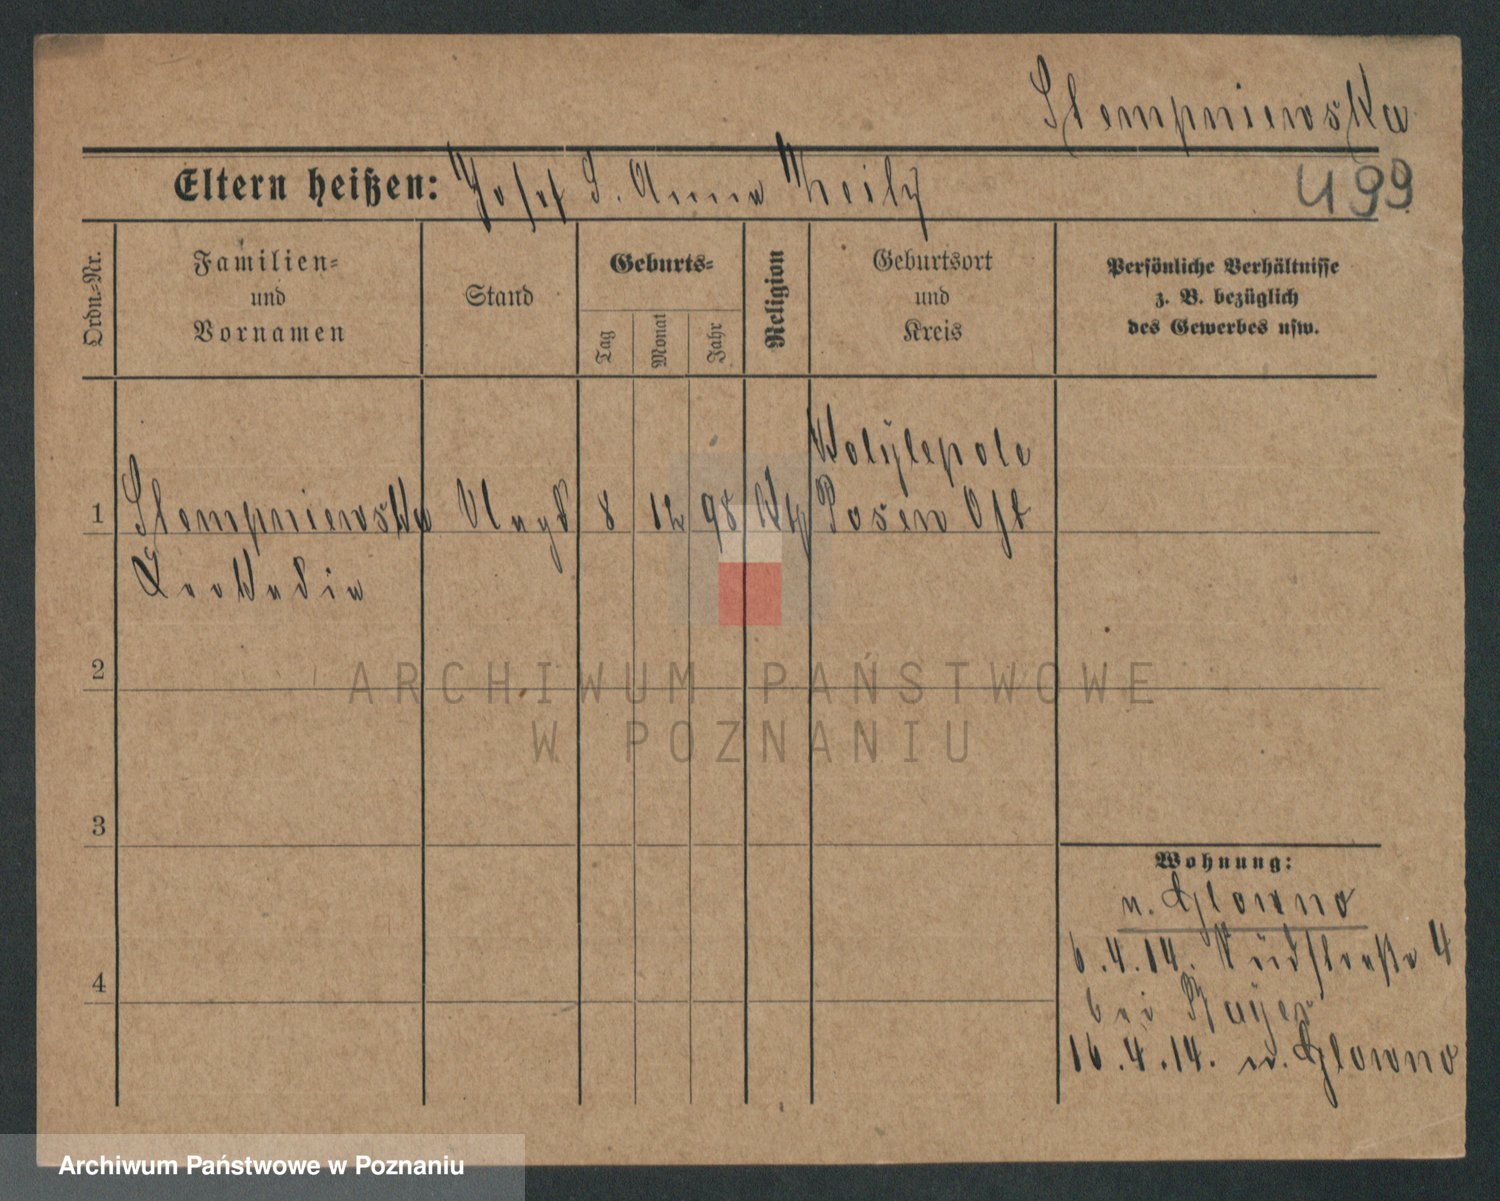 Stempniewska
Eltern heißen: Josef S. Anna
499
Ordn.=Nr.
Familien=
und
Vornamen
Stand
Geburts=
Tag
Monat
Jahr
Religion
Geburtsort
und
Kreis
Persönliche Verhältnisse
z. B. bezüglich
des Gewerbes usw.
1
Stempniewska
Leokadia
Magd
8
12
98
Kth
Posen Ost
2
3
4
Wohnung:
n. Glowno
6.4.14. Südstraße 4
bei Bayer
16.4.14. n. Glowno
ARCHIWUM PAŃSTWOWE
W POZNANIU
Archiwum Państwowe w Poznaniu